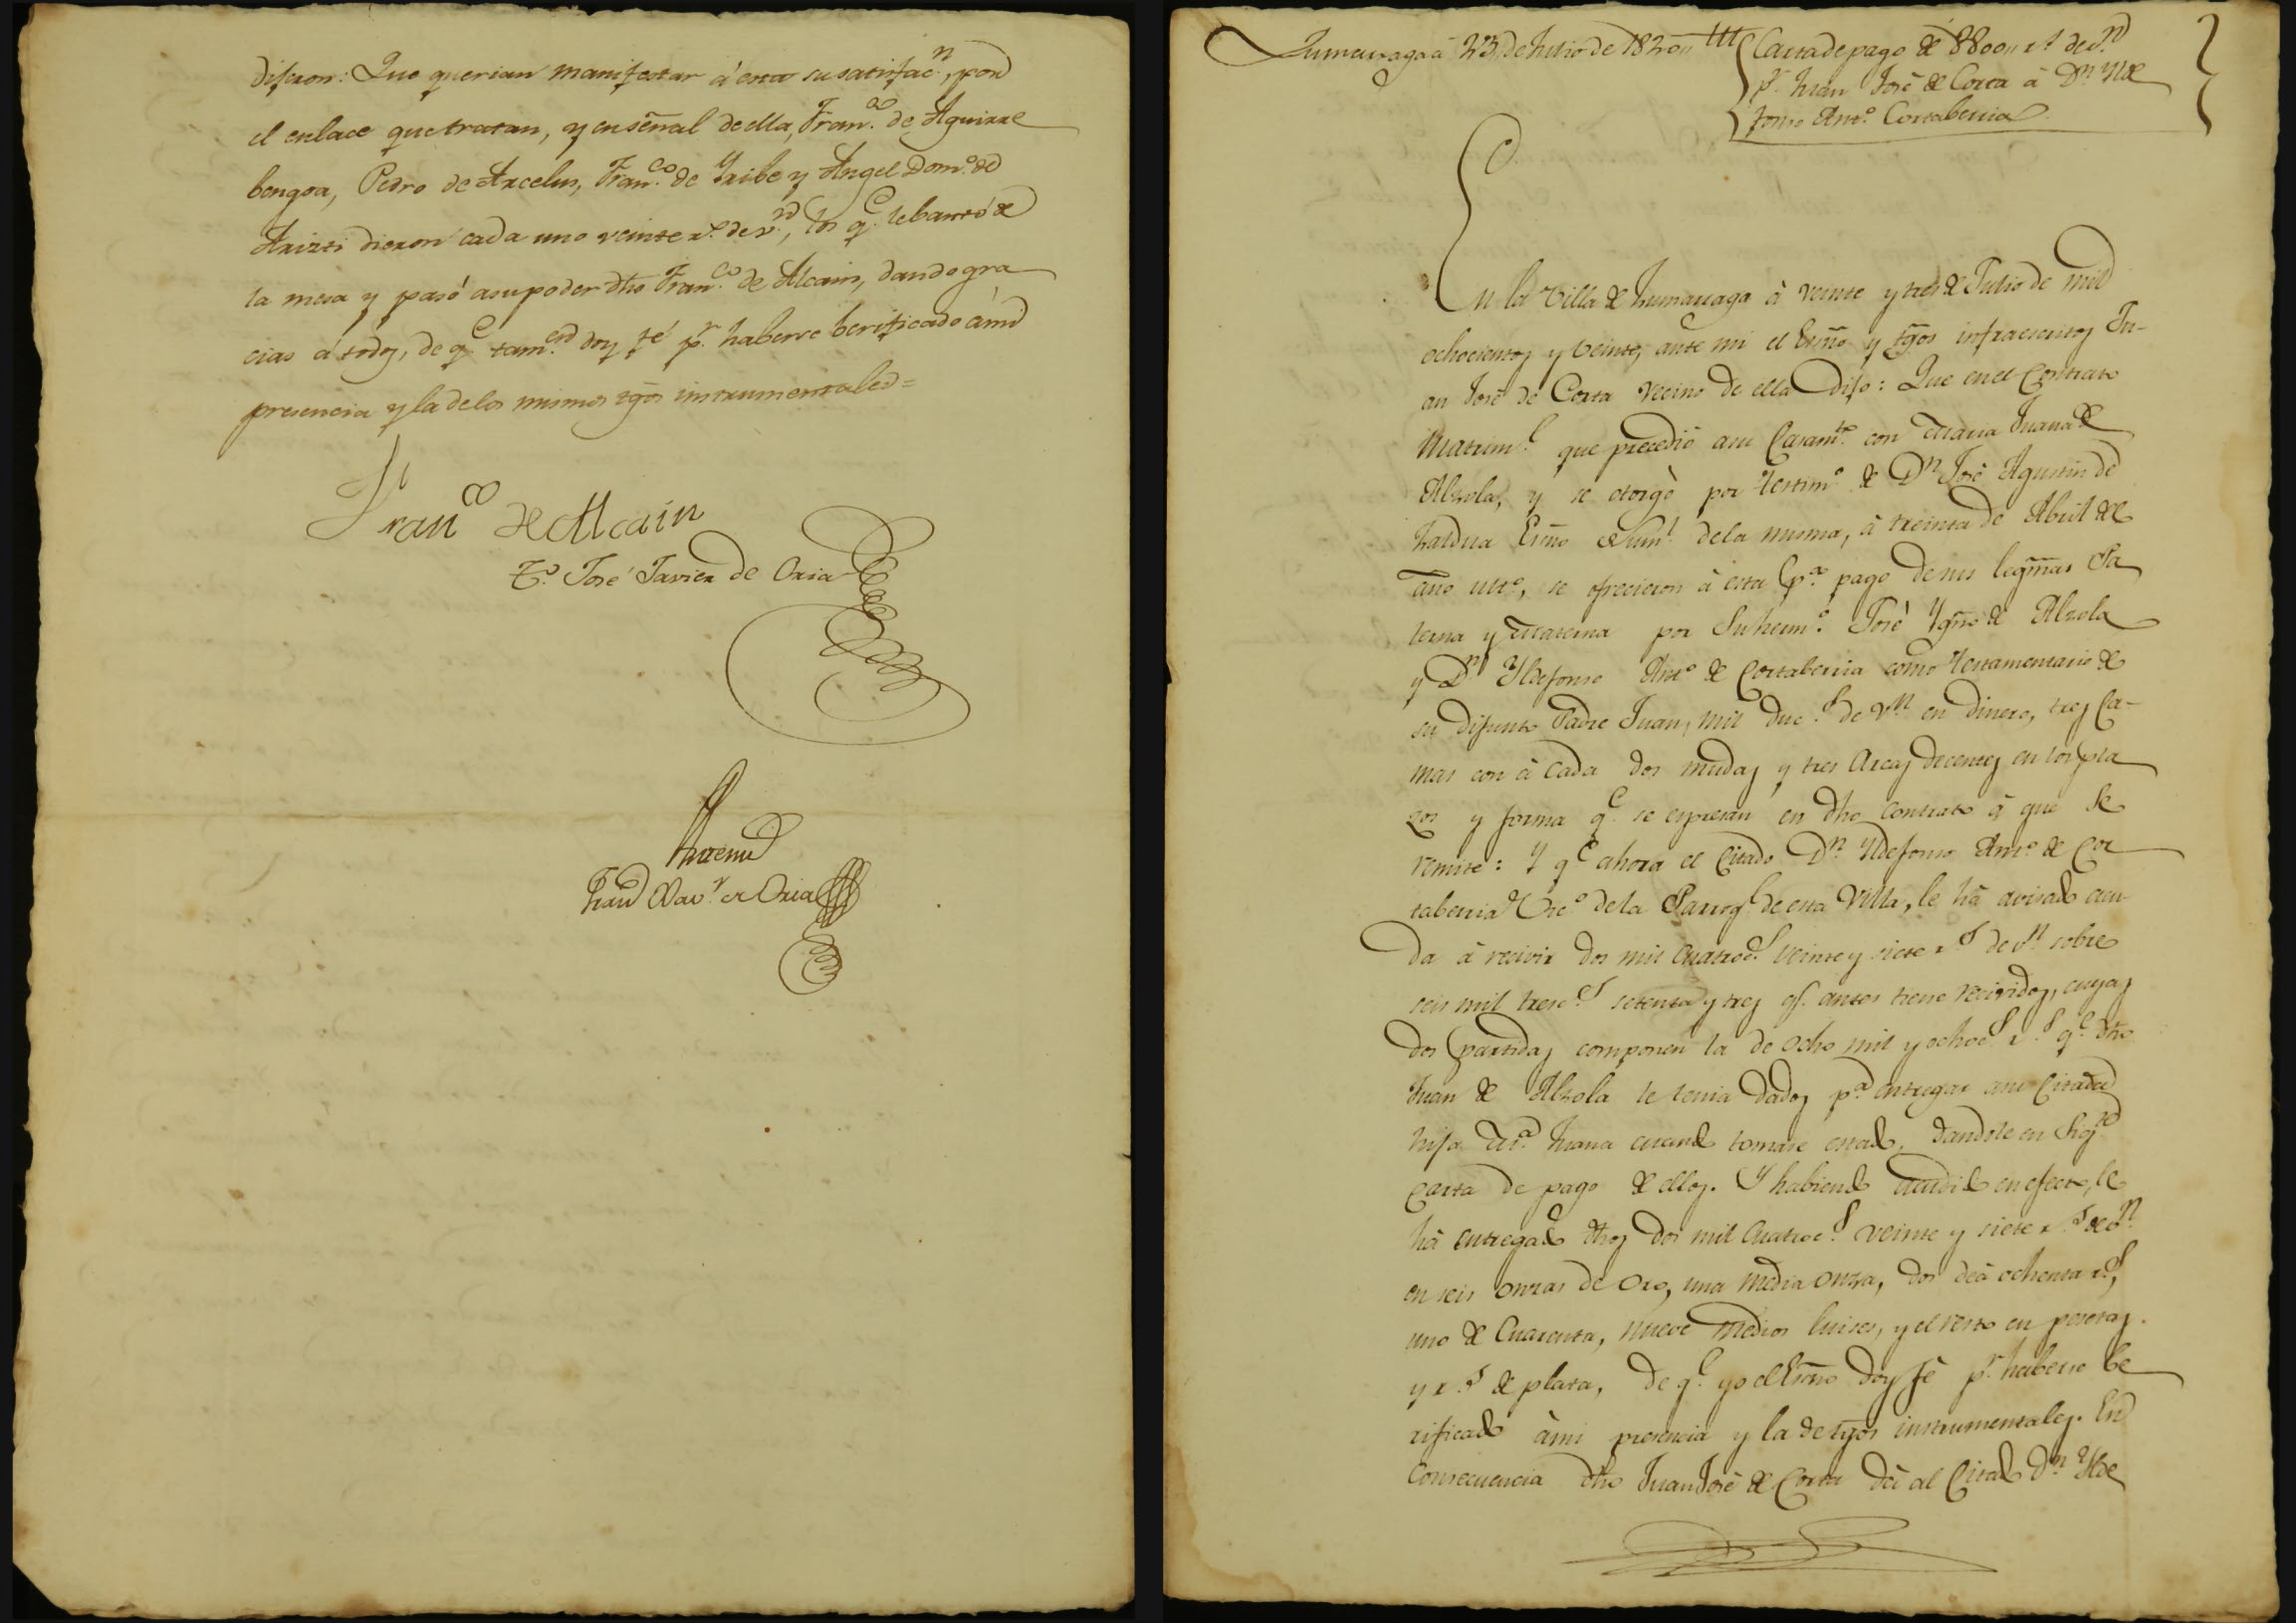 dijeron: Que querian manifestar á esta su satisfac.n, por
el enlace que tratan, y en señal de ella, Fran.co de Aguirre
bengoa, Pedro de Arcelus, Fran.co de Yribe y Angel Dom.o de
Arizti dieron cada uno veinte r.s de v.n, los q.e lebantó de
la mesa y pasó a su poder dho Fran.co de Alcain, dando gra
cias á todos, de q.e tam.en doy fé p.r haberse berificado á mi
presencia y la de los mismos tgos instrumentales=
Fran.co de Alcain
T.o José Javier de Oria
Antemi
Juan Xav.r de Oria
Zumarraga á 23,, de Julio de 1820,,
Carta de pago de 8800,, r.s de v.n
p.r Juan José de Corta á D.n Ylde
fonso Ant.o Cortaberria
En la Villa de Zumarraga á veinte y tres de Julio de mil
ochocientos y veinte, ante mi el Esno y tgos infraescritos Ju-
an José de Corta vecino de ella Dijo: Que en el Contrato
Matrim.l que precedió a su Casam.to con Maria Juana de
Alzola, y se otorgó por testim.o de D.n José Agustin de
Zaldua Esno Num.l de la misma, á treinta de Abril de
año ult.o, se ofrecieron á esta p.a pago de sus legmas Pa
terna y Materna por Su herm.o José Ygn.o de Alzola
y D.n Yldefonso Ant.o de Cortaberria como testamentario de
su difunto Padre Juan, mil duc.s de v.n en dinero, tres Ca-
mas con á cada dos mudas y tres Arcas decentes en los pla
zos y forma q.e se espresan en dho contrato á que se
remite: Y q.e ahora el Citado D.n Yldefonso Ant.o de Cor
taberria de la Parroq.l de esta Villa, le há avisado acu
da á recivir dos mil cuatroc.s veinte y siete r.s de v.n sobre
seis mil tresc.s setenta y tres q.e antes tiene recividos, cuyas
dos partidas componen la de ocho mil y ochoc.s r.s q.e dho
Juan de Alzola le tenia dados p.a entregar a su Citada
hija M.a Juana cuando tomare estado, dandole en
carta de pago de ellos. Y habiendo acudido en efecto, le
há entregado dhos dos mil cuatroc.s veinte y siete r.s de v.n
en seis onzas de oro, una media onza, dos de á ochenta r.s,
uno de Cuarenta, nueve medios luises, y el resto en pesetas.
y r.s de plata, de q.e yo el Esno doy fé p.r haberse be
rificado á mi presencia y la de tgos instrumentales. En
Consecuencia dho Juan José de Corta dá al Citado D.n Ylde